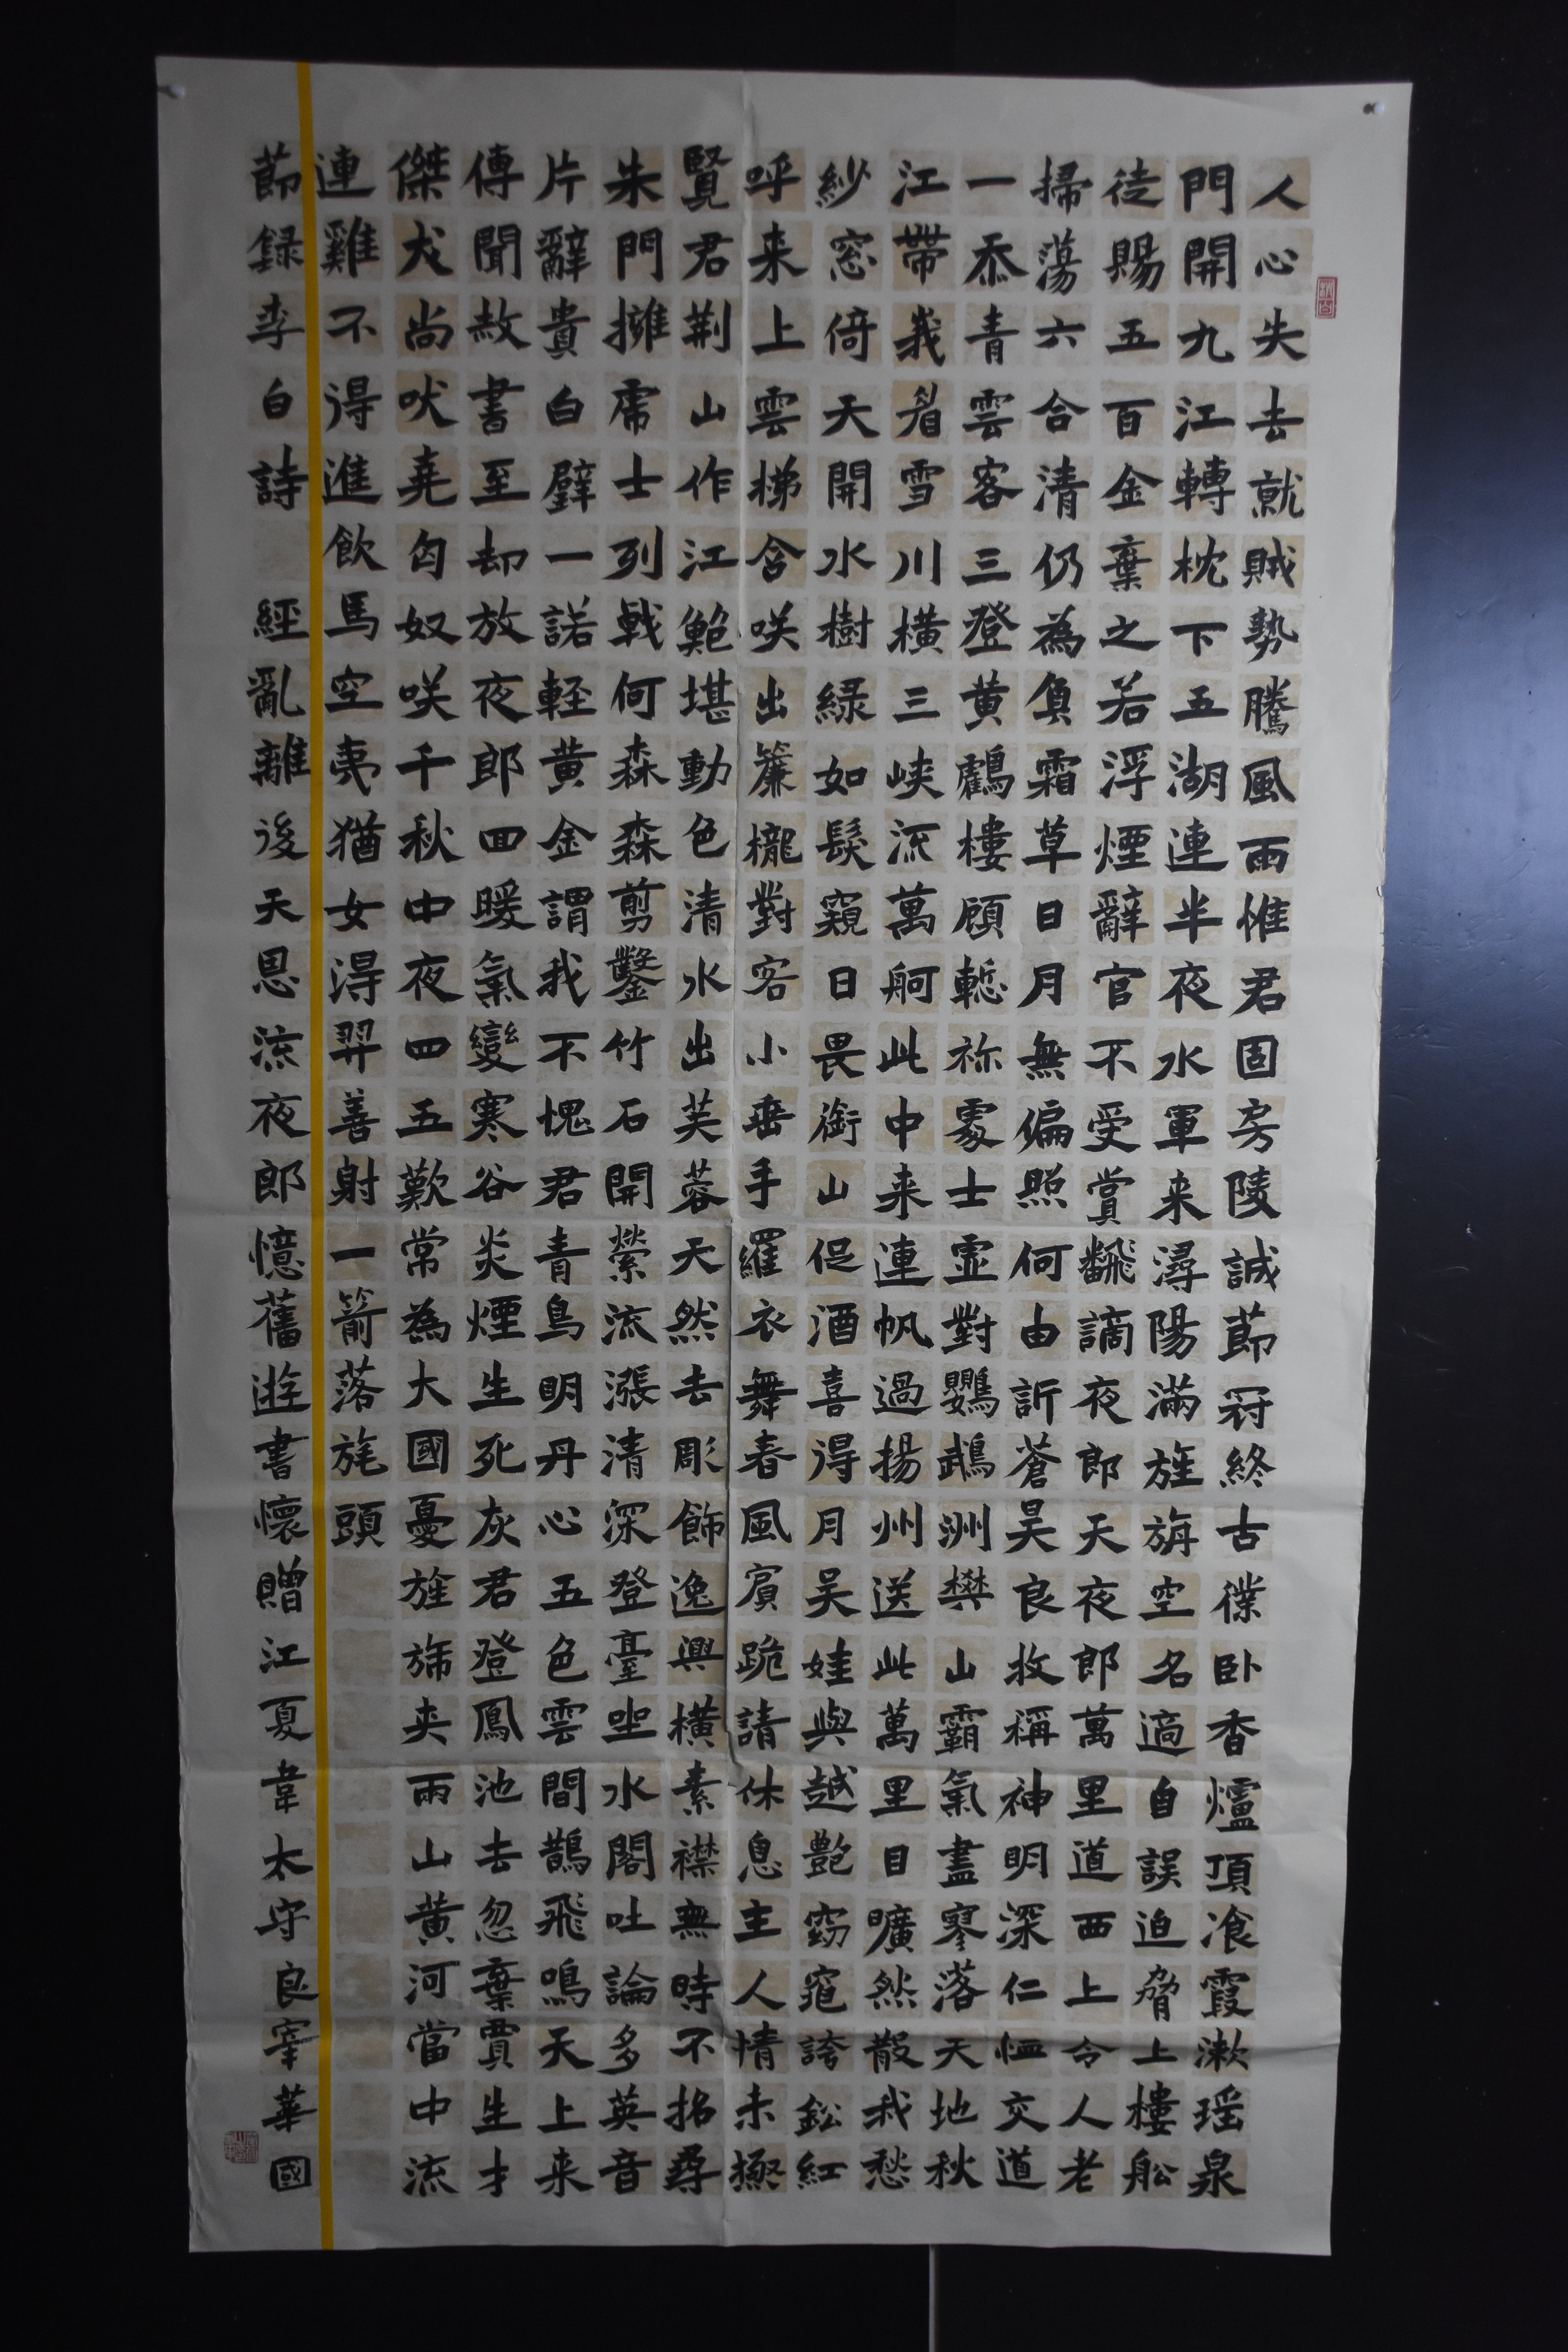 人心失去就賊勢騰風雨惟君固房陵誠節冠終古僕卧香爐頂飡霞漱瑶泉
門開九江轉枕下五湖連半夜水軍来潯陽滿旌旃空名適自誤迫脅上樓舩
徒賜五百金棄之若浮煙辭官不受賞飜謫夜郎天夜郎萬里道西上令人老
掃蕩六合清仍為負霜草日月無偏照何由訴蒼昊良牧稱神明深仁恤交道
一忝青雲客三登黄鶴樓顧慙祢處士虚對鸚鵡洲樊山霸氣盡寥落天地秋
江帶峩眉雪川橫三峽流萬舸此中来連帆過揚州送此萬里目曠然散我愁
紗窓倚天開水樹緑如髮窺日畏銜山促酒喜得月吴娃與越艷窈窕誇鉛紅
呼来上雲梯含咲出簾櫳對客小垂手羅衣舞春風賓跪請休息主人情未極
賢君荆山作江鮑堪動色清水出芙蓉天然去彫飾逸興橫素襟無時不招尋
朱門擁虎士列戟何森森剪鑿竹石開縈流漲清深登臺坐水閣吐論多英音
片辭貴白璧一諾輕黄金謂我不愧君青鳥明丹心五色雲間鵲飛鳴天上来
傳聞赦書至却放夜郎回暖氣變寒谷炎煙生死灰君登鳳池去忽棄賈生才
傑犬尚吠堯匈奴咲千秋中夜四五歎常為大國憂旌旆夾兩山黄河當中流
連雞不得進飲馬空夷猶女淂羿善射一箭落旄頭
節録李白詩 經亂離後天恩流夜郎憶舊遊書懷贈江夏韋太守良宰華國